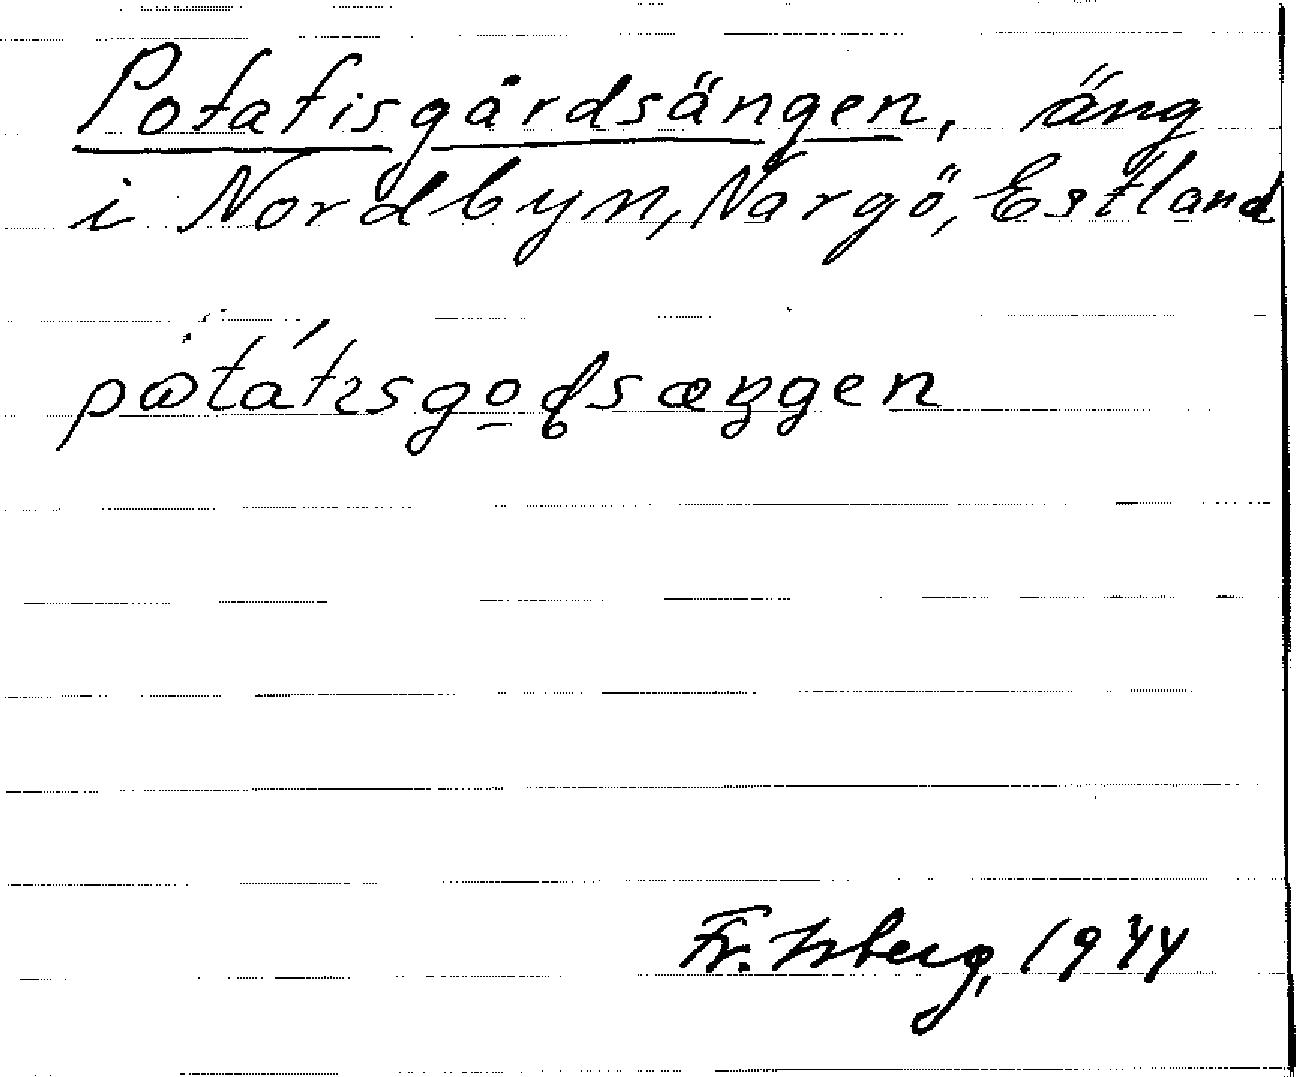 Potatisgårdsängen, äng
i Nordbyn, Nargö, Estland
pωtátɩsgo̲ꞗsæŋgen
Fr. Isberg, 1944